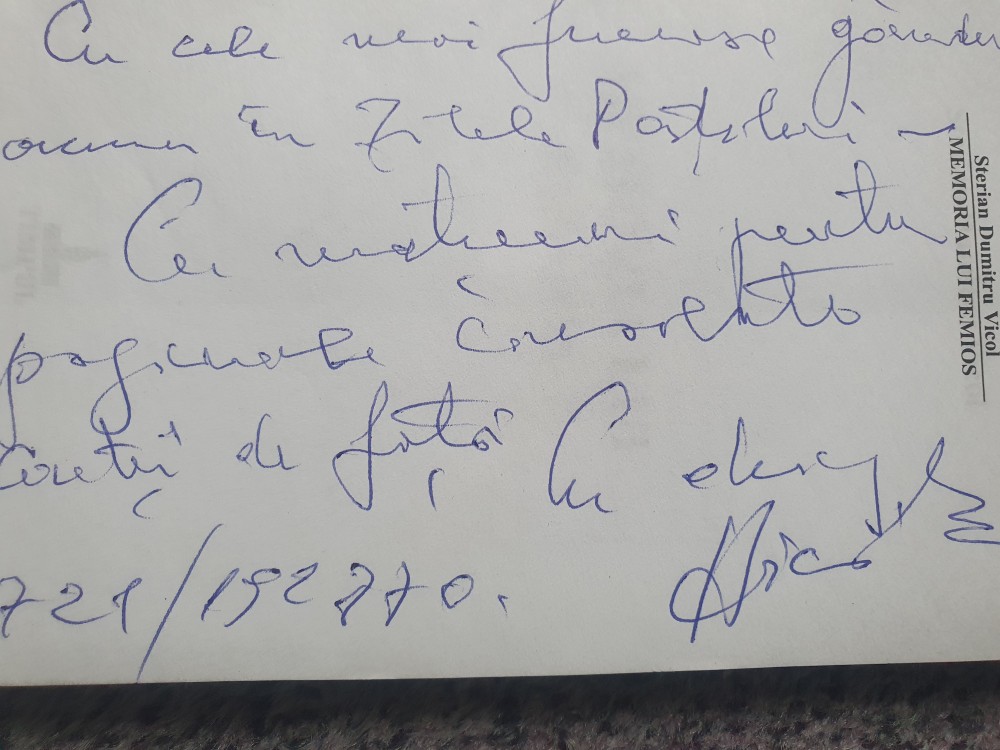 Cu cele mai frumoase gânduri
acum în Zilele Paștelui –
Cu mulțumiri pentru
paginate
Cărții de față Cu drag
721/192770.
Vicol
Sterian Dumitru Vicol
MEMORIA LUI FEMIOS